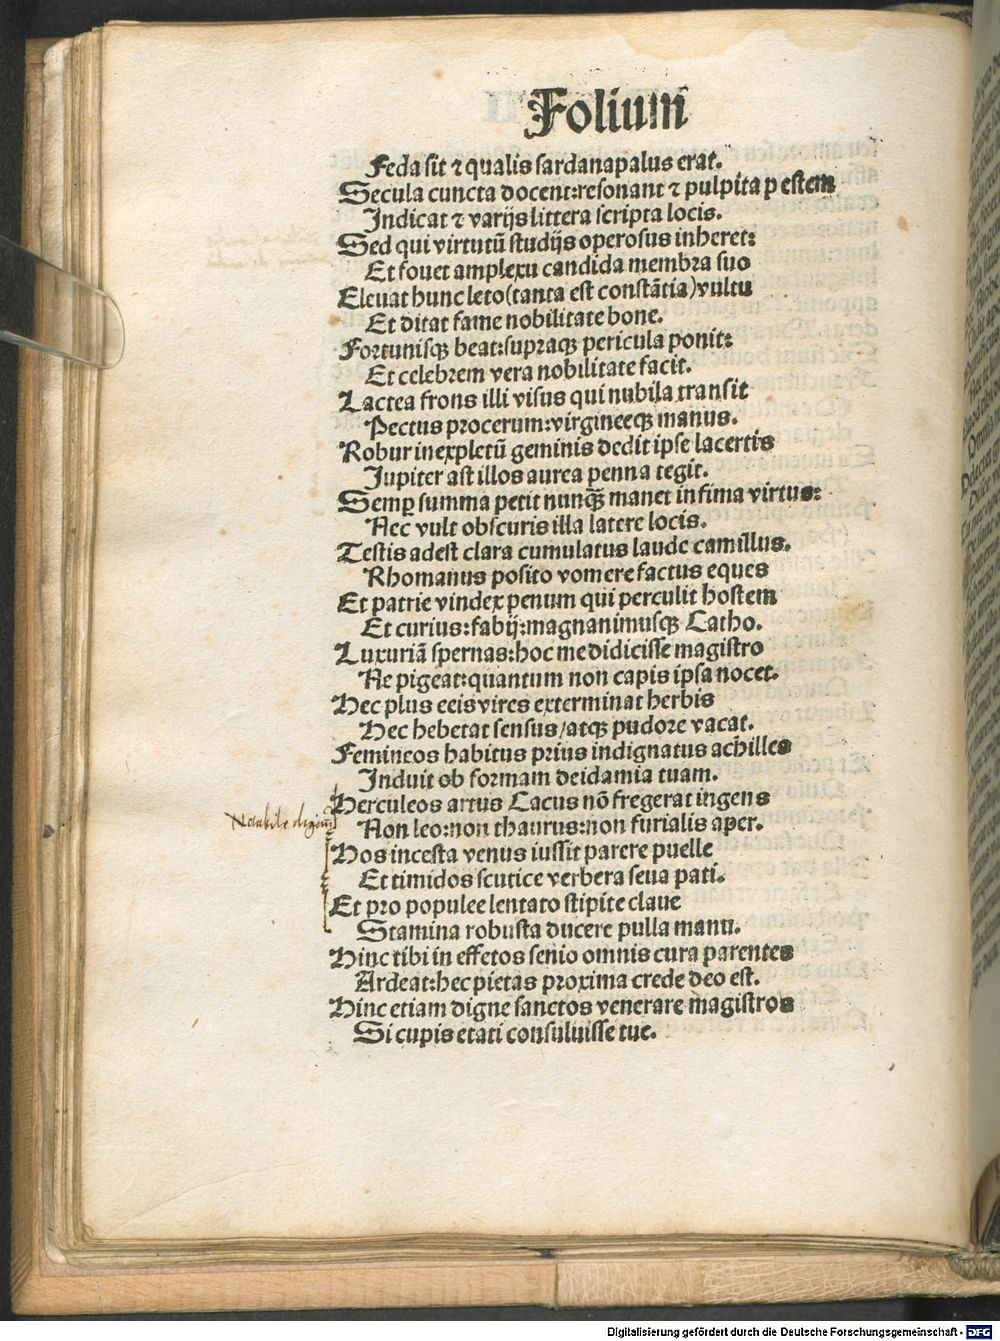 Folium
Feda sit ⁊ qualis sardanapalus erat.
Secula cuncta docent:resonant ⁊ pulpita p estem
Indicat ⁊ varijs littera scripta locis.
Sed qui virtutũ studijs operosus inheret:
Et fouet amplexu candida membra suo
Eleuat hunc leto(tanta est constãtia)vultu
Et ditat fame nobilitate bone.
Fortunisqꝫ beat:supraqꝫ pericula ponit:
Et celebrem vera nobilitate facit.
Lactea frons illi visus qui nubila transit
Pectus procerum:virgineeqꝫ manus.
Robur inexpletũ geminis dedit ipse lacertis
Jupiter ast illos aurea penna tegit.
Semꝑ summa petit nunq̃ꝫ manet infima virtus:
Nec vult obscuris illa latere locis.
Testis adest clara cumulatus laude camillus.
Rhomanus posito vomere factus eques
Et patrie vindex penum qui perculit hostem
Et curius:fabij:magnanimusqꝫ Catho.
Luxuriã spernas:hoc me didicisse magistro
Ne pigeat:quantum non capis ipsa nocet.
Hec plus eeis vires exterminat herbis
Hec hebetat sensus/atqꝫ pudore vacat.
Femineos habitus prius indignatus achilles
Induit ob formam deidamia tuam.
Herculeos artus Cacus nõ fregerat ingens
Non leo:non thaurus:non furialis aper.
Hos incesta venus iussit parere puelle
Et timidos scutice verbera seua pati.
Et pro populee lentato stipite claue
Stamina robusta ducere pulla manu.
Hinc tibi in effetos senio omnis cura parentes
Ardeat:hec pietas proxima crede deo est.
Hinc etiam digne sanctos venerare magistros
Si cupis etati consuluisse tue.
Digitalisierung gefördert durch die Deutsche Forschungsgemeinschaft - DFG